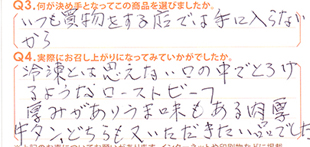 Q3.何が決め手となってこの商品を選びましたか。
いつも買物をする店では手に入らない
から
Q4.実際にお召し上がりになってみていかがでしたか。
冷凍とは思えない口の中でとろけ
るようなローストビーフ
厚みがありうま味もある肉厚
牛タン、どちらも又いただきたい品でした